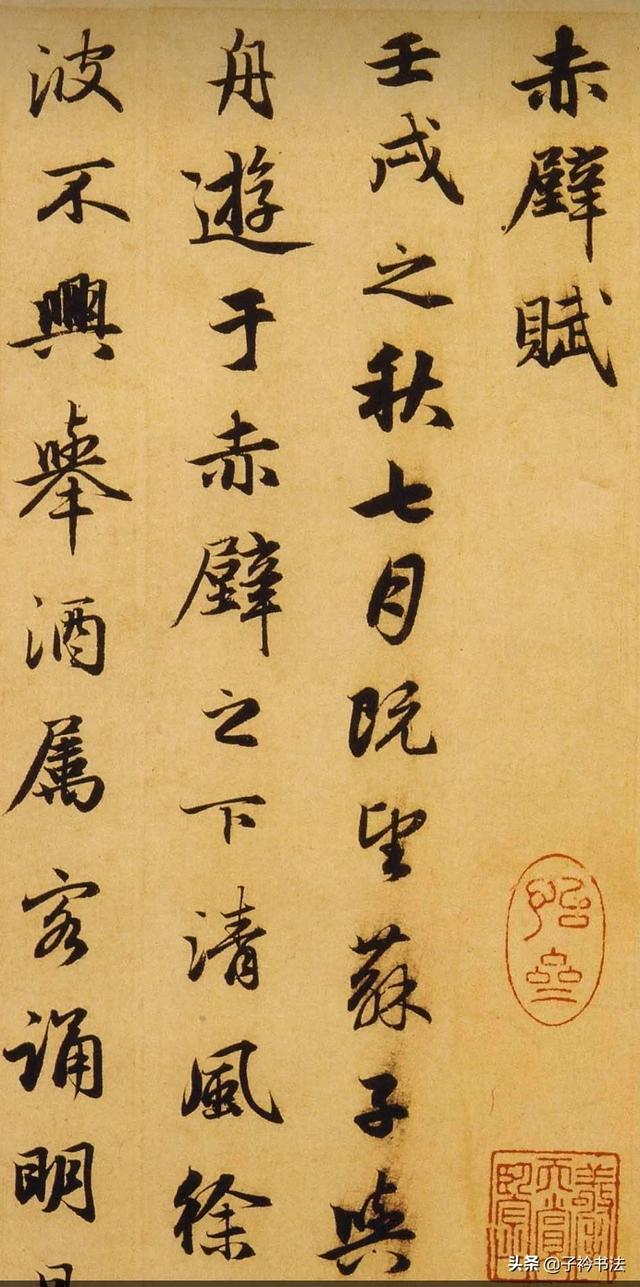 赤壁賦
壬戌之秋七月既望蘇子與
舟遊于赤壁之下清風徐
波不興舉酒属客誦明
头条 @子衿书法